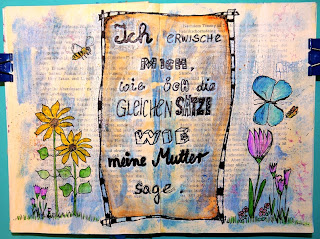 Ich erwische
mich,
wie ich die
GLEICHEN SÄTZE
WIE
meine Mutter
sage